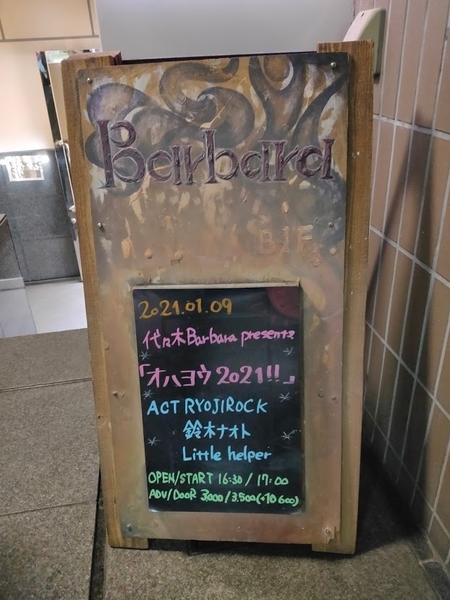 Barbara
B1F
2021.01.09
代々木Barbara presents
「オハヨウ2021!!」
ACT RYOJIROCK
鈴木ナオト
Little helper
OPEN/START 16:30 / 17:00
ADV/DOOR 3,000 / 3,500(+1D 600)